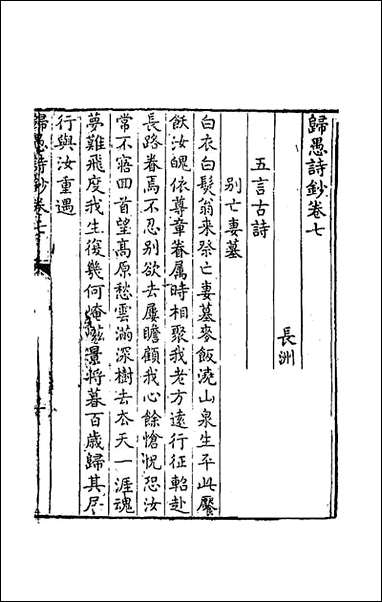 歸愚詩鈔卷七
長洲
五言古詩
别亡妻墓
白衣白髮翁來祭亡妻墓麥飯澆山泉生平此饜
飫汝魄依尊章眷屬時相聚我老方遠行征軺赴
長路眷焉不忍别欲去屢瞻顧我心餘愴怳恐汝
常不寤回首望高原愁雲滿深樹去去天一涯魂
夢難飛度我生復幾何崦嵫景將暮百歲歸其居
行與汝重遇
歸愚詩鈔卷七